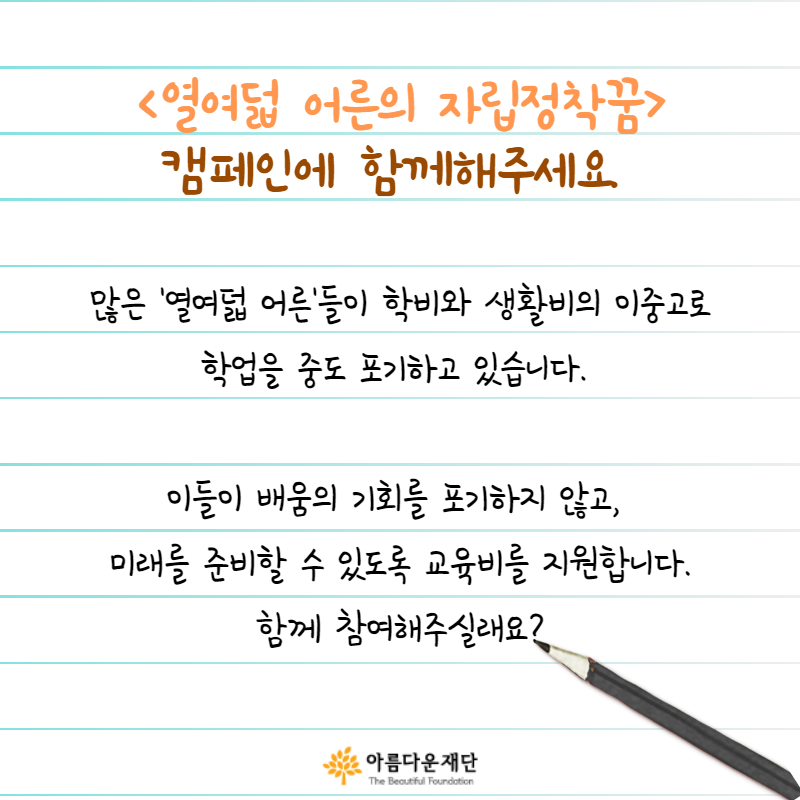 <열여덟 어른의 자립정착꿈>
캠페인에 함께해주세요
많은 '열여덟 어른'들이 학비와 생활비의 이중고로
학업을 중도 포기하고 있습니다.
이들이 배움의 기회를 포기하지 않고,
미래를 준비할 수 있도록 교육비를 지원합니다.
함께 참여해주실래요?
아름다운재단
The Beautiful Foundation